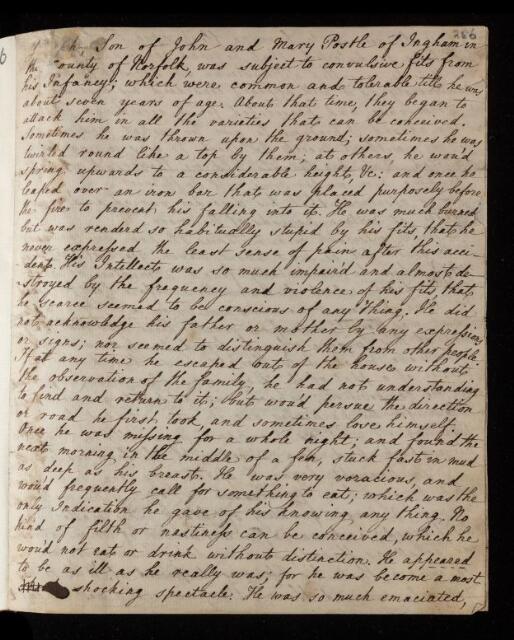 286
Son of John and Mary Postle of Ingham in
the County of Norfolk, was subject to convulsive fits from
his Infancy; which were common and tolerable till he was
about seven years of age. About that time, they began to
attack him in all the varieties that can be conceived.
Sometimes he was thrown upon the ground; sometimes he was
twirled round like a top by them; at others, he wou'd
spring upwards to a considerable height, &c: and once he
leaped over an iron bar that was placed purposely before
the fire to prevent his falling into it. He was much burned,
but was renderd so habitually stupid by his fits that he
never expressed the least sense of pain after this acci-
dent. His Intellects was so much impaird and almost de-
stroyed by the frequency and violence of his fits that
he scarce seemed to be conscious of any thing. He did
not acknowledge his father or mother by any expressions
or signs; nor seemed to distinguish them from other people.
If at any time he escaped out of the house without
the observation of the family, he had not understanding
to find and return to it; but wou'd persue the direction
or road he first took, and sometimes lose himself.
Once he was missing for a whole night; and found the
next morning in the middle of a fen, stuck fast in mud
as deep as his breast. He was very voracious, and
wou'd frequently call for something to eat; which was the
only Indication he gave of his knowing any thing. No
kind of filth or nastiness can be conceived, which he
wou'd not eat or drink without distinction. He appeared
to be as ill as he really was; for he was become a most
shocking spectacle. He was so much emaciated,